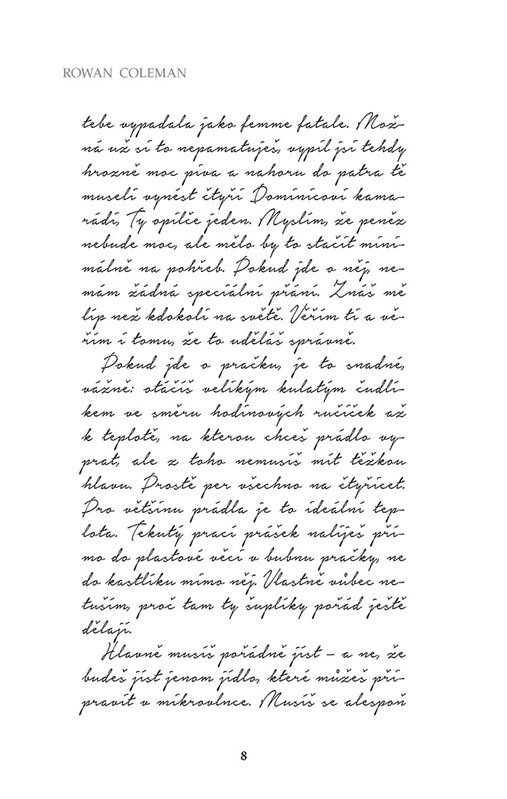 ROWAN COLEMAN
tebe vypadala jako femme fatale. Mož-
ná už si to nepamatuješ, vypil jsi tehdy
hrozně moc piva a nahoru do patra tě
museli vynést čtyři Dominicovi kama-
rádi, Ty opilče jeden. Myslím, že peněz
nebude moc, ale mělo by to stačit mini-
málně na pohřeb. Pokud jde o něj, ne-
mám žádná speciální přání. Znáš mě
líp než kdokoli na světě. Věřím ti a vě-
řím i tomu, že to uděláš správně.
Pokud jde o pračku, je to snadné,
vážně: otáčíš velikým kulatým čudlí-
kem ve směru hodinových ručiček až
k teplotě, na kterou chceš prádlo vy-
prat, ale z toho nemusíš mít těžkou
hlavu. Prostě per všechno na čtyřicet.
Pro většinu prádla je to ideální tep-
lota. Tekutý prací prášek naliješ pří-
mo do plastové věci v bubnu pračky, ne
do kastlíku mimo něj. Vlastně vůbec ne-
tuším, proč tam ty šuplíky pořád ještě
dělají.
Hlavně musíš pořádně jíst – a ne, že
budeš jíst jenom jídlo, které můžeš při-
pravit v mikrovlnce. Musíš se alespoň
8